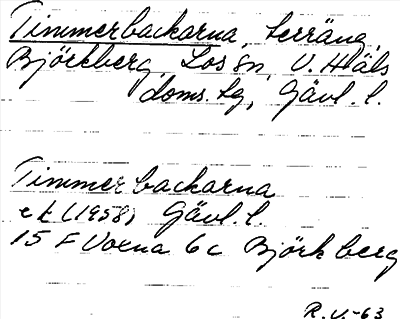 Timmerbackarna, terräng,
Björkberg, Los sn, V. Häls
doms. tg, Gävl. l.
Timmerbackarna
ek (1958) Gävl. l.
15 F Voxna 6c Björkberg
R. V. -63